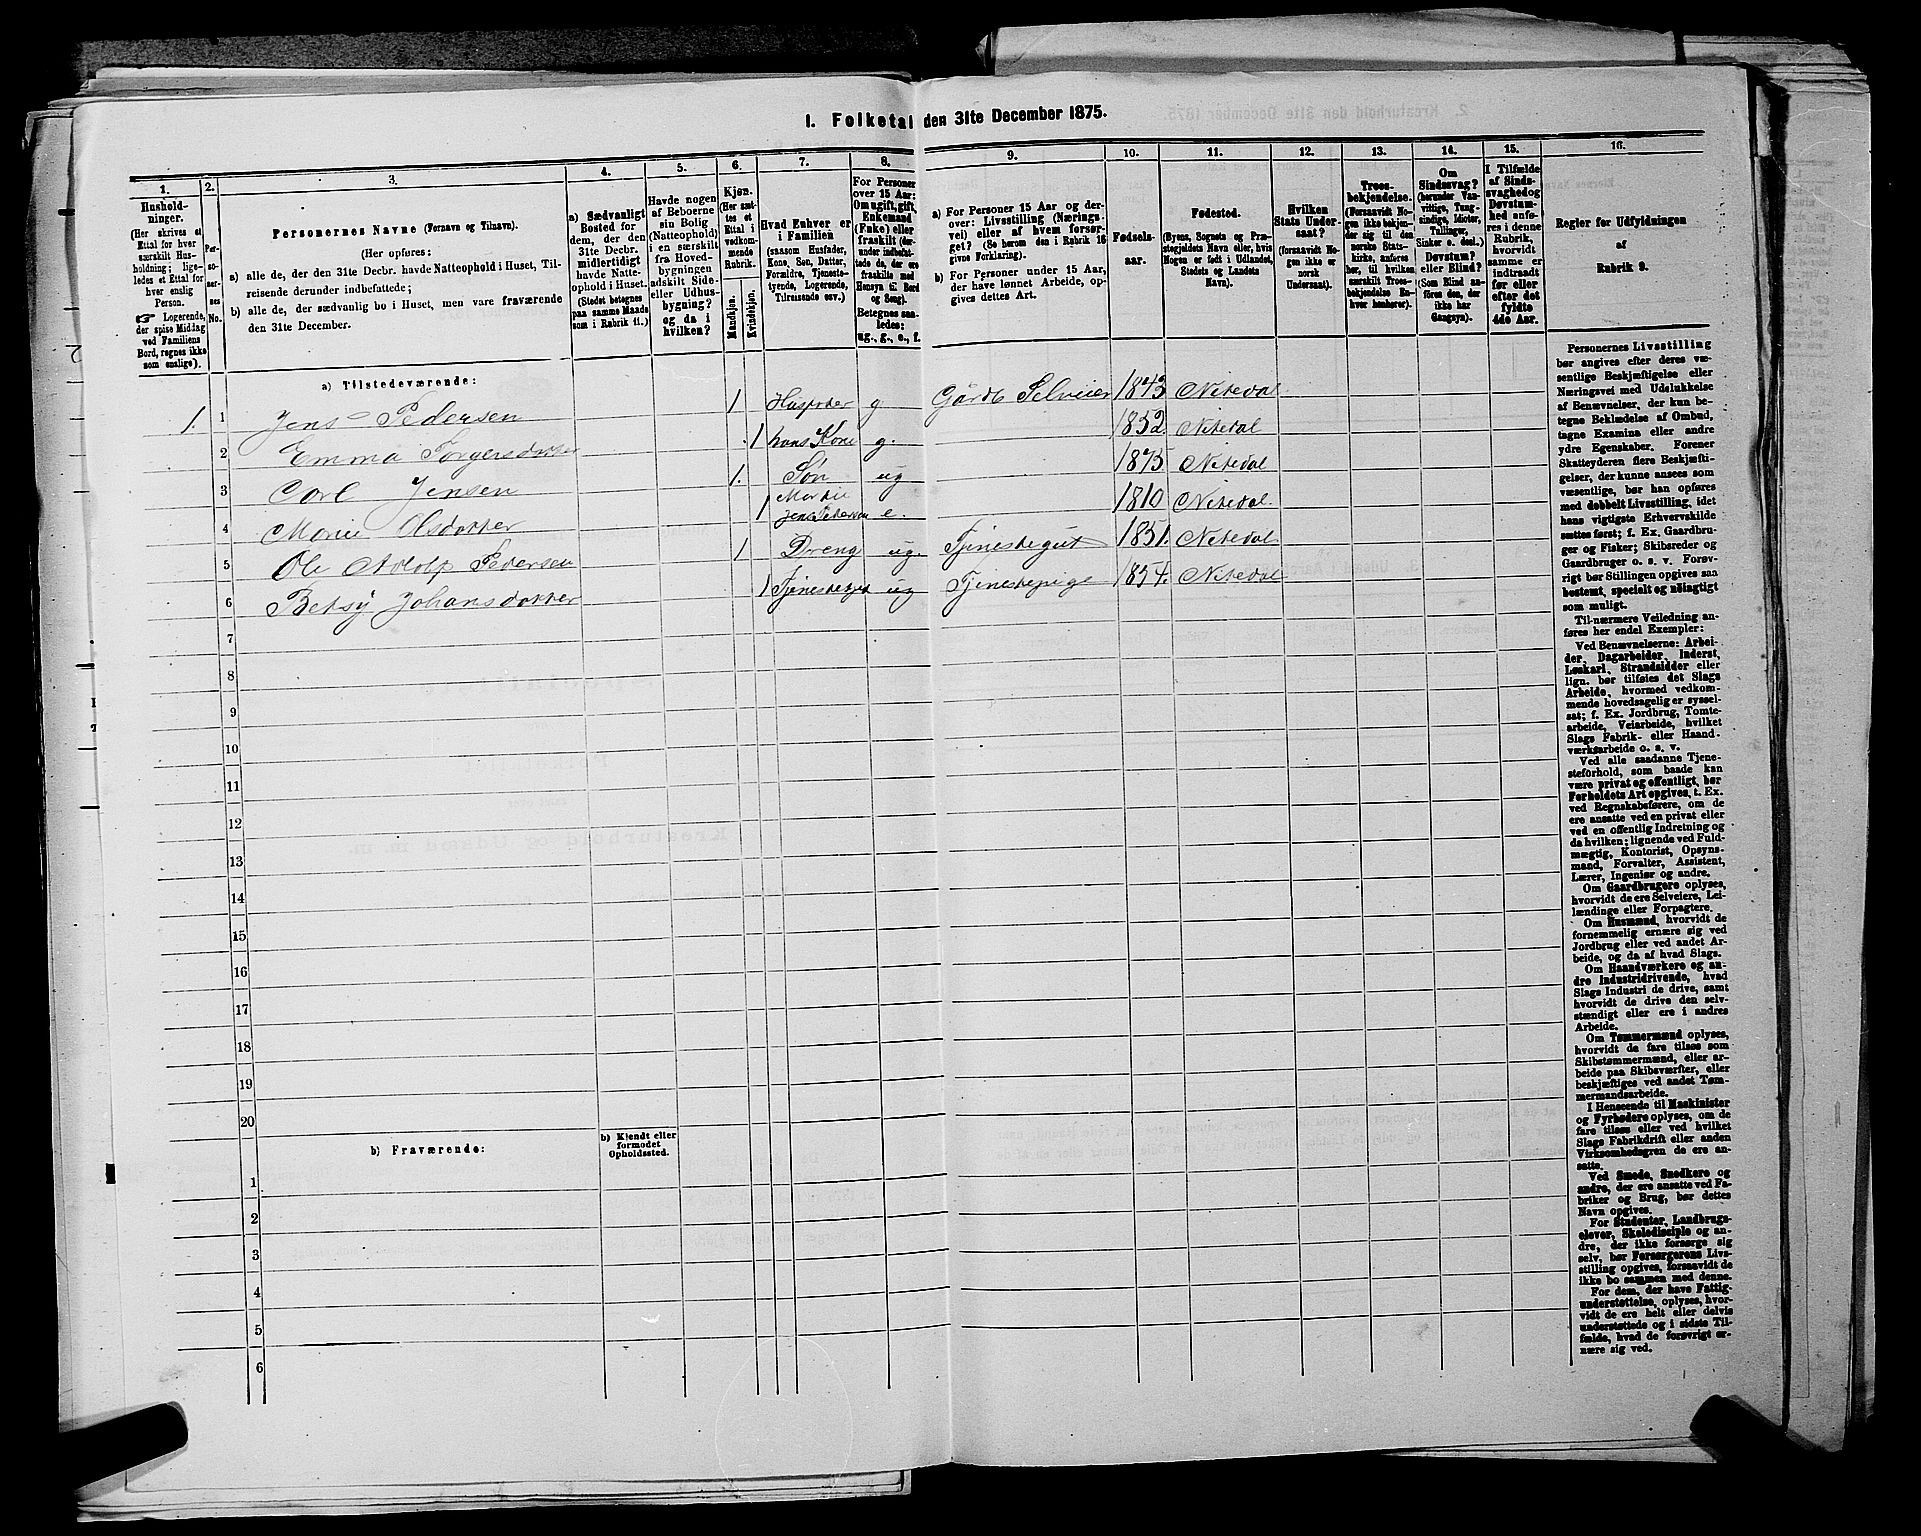 1. Folketal den 31te December 1875.
1. 2. 3. 4. 5. 6. 7. 8. 9. 10. 11. 12. 13. 14. 15. 16.
Hushold-
ninger.
(Her skrives et
Ettal for hver
særskilt Hus-
holdning; lige-
ledes et Ettal for
hver enslig
Person.
☞ Logerende,
der spise Middag
ved Familiens
Bord, regnes ikke
som enslige).
Per-
so-
ner-
nes
No.
Personernes Navne (Fornavn og Tilnavn).
(Her opføres:
a) alle de, der den 31te Decbr. havde Natteophold i Huset, Til-
reisende derunder indbefattede;
b) alle de, der sædvanlig bo i Huset, men vare fraværende
den 31te December.
a) Sædvanligt
Bosted for
dem, der den
31te Decbr.
midlertidigt
havde Natte-
ophold i Huset.
(Stedet betegnes
paa samme Maade
som i Rubrik 11.)
Havde nogen
af Beboerne
sin Bolig
(Natteophold)
i en særskilt
fra Hoved-
bygningen
adskilt Side-
eller Udhus-
bygning?
og da i
hvilken?
Kjøn.
(Her sæt-
tes et
Ettal i
vedkom-
mende
Rubrik.
Mandkjøn.
Kvindekjøn.
Hvad Enhver er
i Familien
(saasom Husfader,
Kone, Søn, Datter,
Forældre, Tjeneste-
tyende, Logerende,
Tilreisende osv.)
For Personer
over 15 Aar:
Om ugift, gift,
Enkemand
(Enke) eller
fraskilt (der-
under indbefat-
tede da, der ere
fraskilte med
Hensyn til Bord
og Seng).
Betegnes saa-
ledes:
ug., g., e., f.
a) For Personer 15 Aar og der-
over: Livsstilling (Nærings-
vei) eller af hvem forsør-
get? (Se herom den i Rubrik 16
givne Forklaring).
b) For Personer under 15 Aar,
der have lønnet Arbeide, op-
gives dettes Art.
Fødsels-
aar.
Fødested.
(Byens, Sognets og Præ-
stegjeldets Navn eller, hvis
Nogen er født i Udlandet,
Stedets og Landets
Navn).
Hvilken
Stats Under-
saat?
(forsaavidt No-
gen ikke er
norsk
Undersaat).
Troes-
bekjendelse.
(Forsaavidt No-
gen ikke bekjen-
der sig til den
norske Stats-
kirke, anføres
her, til hvilken
særskilt Troes-
bekjendelse En-
hver henhører).
Om
Sindssvag?
(herunder Van-
vittige, Tung-
sindige, Idioter,
Tullinger,
Sinker o. desl.)
Døvstum?
eller Blind?
(Som Blind an-
føres den, der
ikke har
Gangsyn).
I Tilfælde
af Sinds-
svaghed og
Døvstum-
hed anfø-
res i denne
Rubrik,
hvorvidt
samme er
indtraadt
før eller
efter det
fyldte
4de Aar.
Regler for Udfyldningen
af
Rubrik 9.
a) Tilstedeværende:
1. 1 Jens Pedersen 1 Husfader g Gårdb Selveier 1843 Nitedal
2 Emma Torgersdatter 1 hans Kone g. 1852 Nitedal
3 Carl Jensen 1. Søn ug 1875 Nitedal
4 Marie Olsdatter 1 Jens Pedersen e. 1810 Nitedal.
5 Ole Adolf Pedersen 1 Dreng ug. Tjenestegut 1851. Nitedal
6 Betsy Johansdatter 1 ug Tjenestepige 1854. Nitedal
7
8
9
10
11
12
13
14
15
16
17
18
19
20
b) Fraværende:
b) Kjendt eller
formodet
Opholdssted.
1
2
3
4
5
6
Personernes Livsstilling
bør angives efter deres væ-
sentlige Beskjæftigelse eller
Næringsvei med Udelukkelse
af Benævnelser, der kun be-
tegne Beklædelse af Ombud,
tagne Examina eller andre
ydre Egenskaber. Forener
Skatteyderen flere Beskjæfti-
gelser, der kunne ansees som
væsentlige, bør han opføres
med dobbelt Livsstilling, idet
hans vigtigste Erhvervskilde
sættes først; f. Ex. Gaardbru-
ger og Fisker; Skibsreder og
Gaardbruger o. s. v. Forøv-
rigt bør Stillingen opgives saa
bestemt, specielt og nøiagtigt
som muligt.
Til nærmere Veiledning an-
føres her endel Exempler:
Ved Benævnelserne: Arbei-
der, Dagarbeider, Inderst,
Løskarl, Strandsidder eller
lign. bør tilføies det Slags
Arbeide, hvormed vedkom-
mende hovedsagelig er syssel-
sat; f. Ex. Jordbrug, Tomte-
arbeide, Veiarbeide, hvilket
Slags Fabrik- eller Haand-
værksarbeide o. s. v.
Ved alle saadanne Tjene-
steforhold, som baade kan
være privat og offentligt, bør
Forholdets Art opgives, t. Ex.
ved Regnskabsførere, om de
ere ansatte ved en privat eller
ved en offentlig Indretning og
da hvilken; lignende ved Fuld-
mægtig, Kontorist, Opsyns-
mand, Forvalter, Assistent,
Lærer, Ingeniør og andre.
Om Gaardbrugere oplyses,
hvorvidt de ere Selveiere, Lei-
lændinge eller Forpagtere.
Om Husmænd, hvorvidt de
fornemmelig ernære sig ved
Jordbrug eller ved andet Ar-
beide, og da af hvad Slags.
Om Haandværkere og an-
dre Industridrivende, hvad
Slags Industri de drive, samt
hvorvidt de drive den selv-
stændigt eller ere i andres
Arbeide.
Om Tømmermænd oplyses,
hvorvidt de fare tilsøs som
Skibstømmermænd, eller ar-
beide paa Skibsværfter, eller
beskjæftiges ved andet Tøm-
mermandsarbeide.
I Henseende til Maskinister
og Fyrbødere oplyses, om de
fare tilsøs eller ved hvilket
Slags Fabrikdrift eller anden
Virksomhedsgren de ere an-
satte.
Ved Smede, Snedkere og
andre, der ere ansatte ved Fa-
briker og Brug, bør dettes
Navn opgives.
For Studenter, Landbrugs-
elever, Skoledisciple og an-
dre, der ikke forsørge sig
selv, bør Forsørgerens Livs-
stilling opgives, forsaavidt de
ikke bo sammen med denne.
For dem, der have Fattig-
understøttelse, oplyses, hvor-
vidt de ere helt eller delvis
understøttede og i sidste Til-
fælde, hvad de forøvrigt er-
nære sig ved.